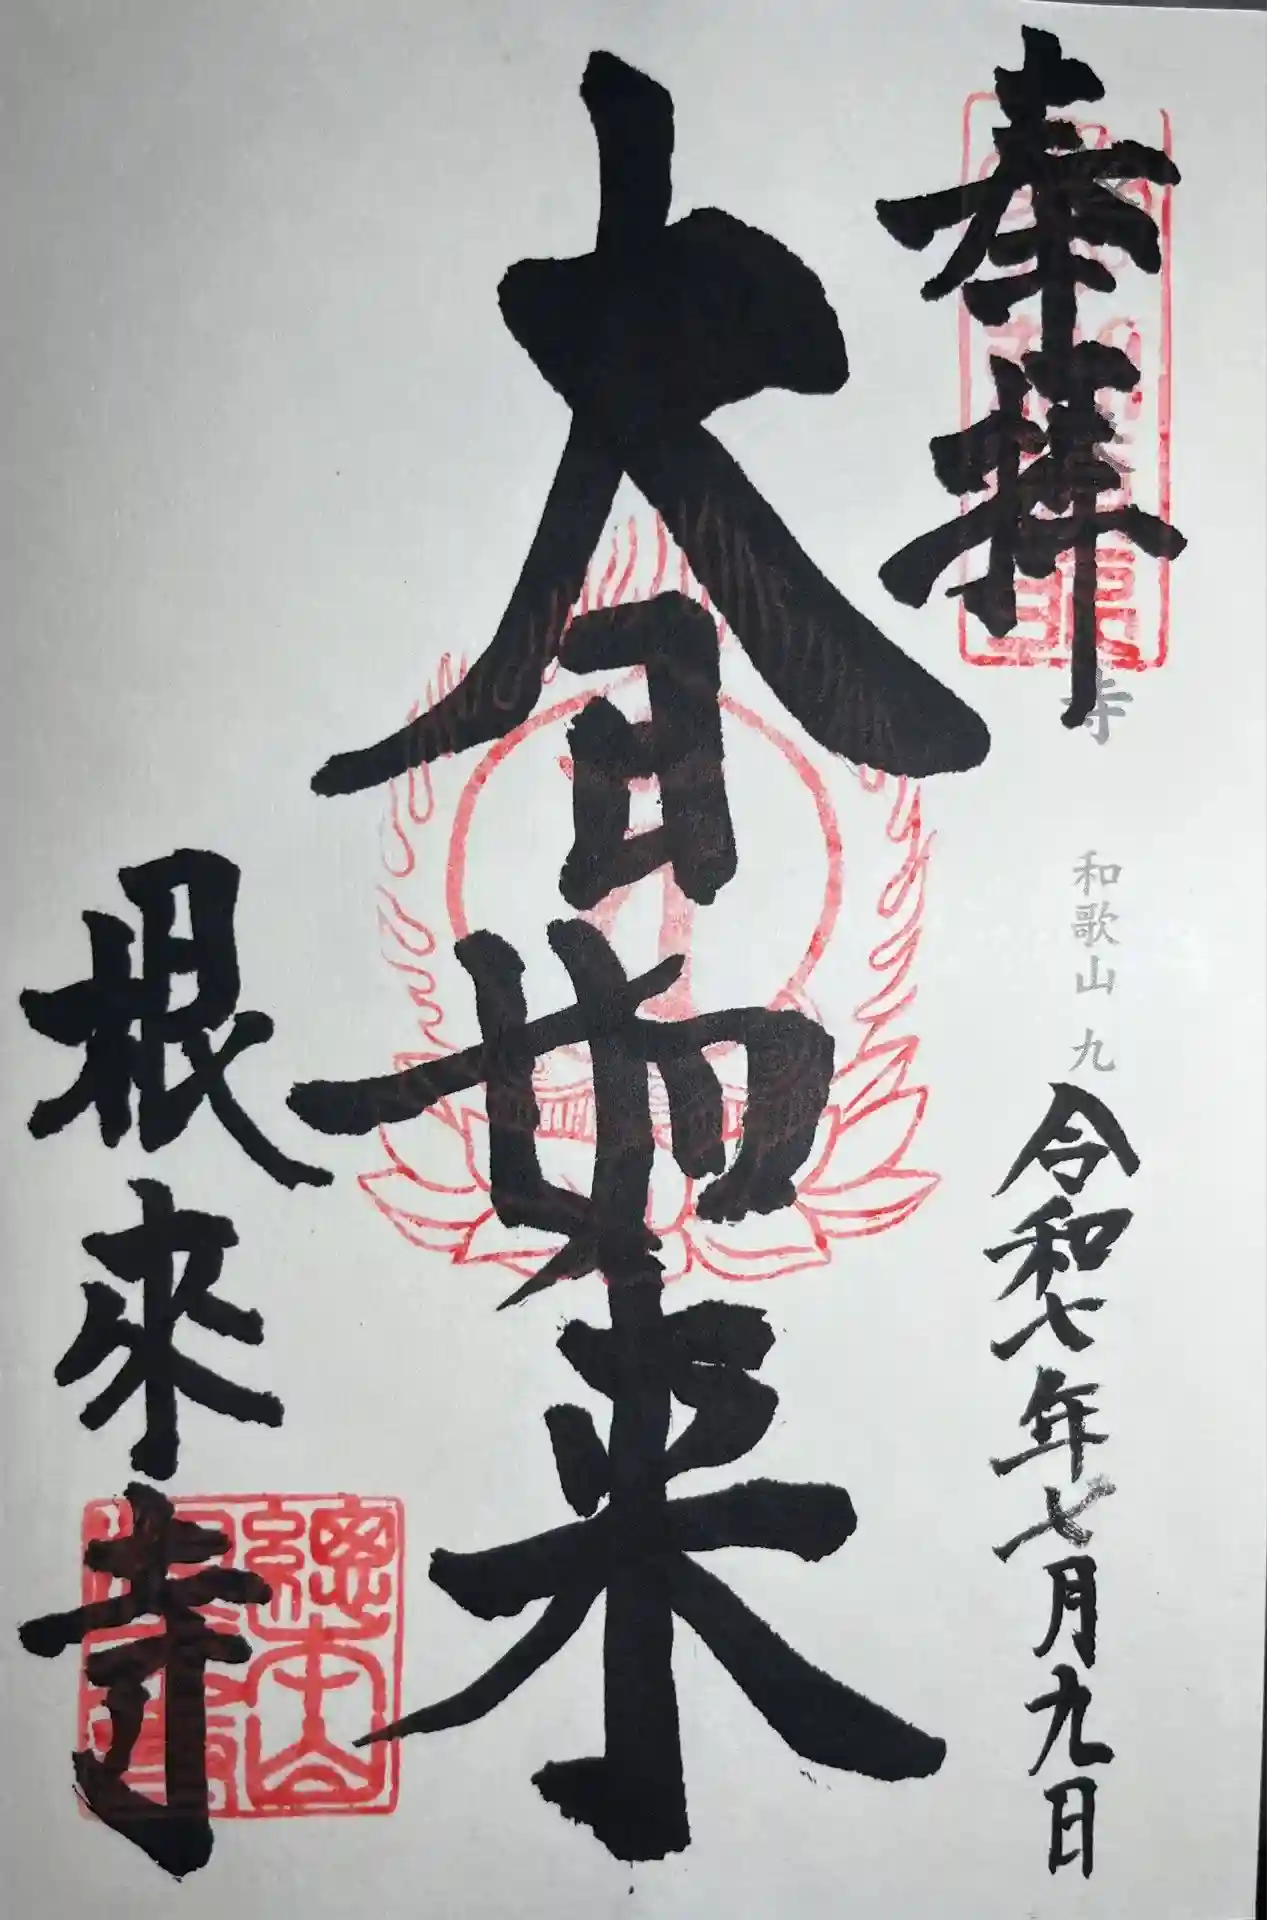 奉拝
寺 和歌山 九
令和七年七月九日
大日如来
根來寺
總本山